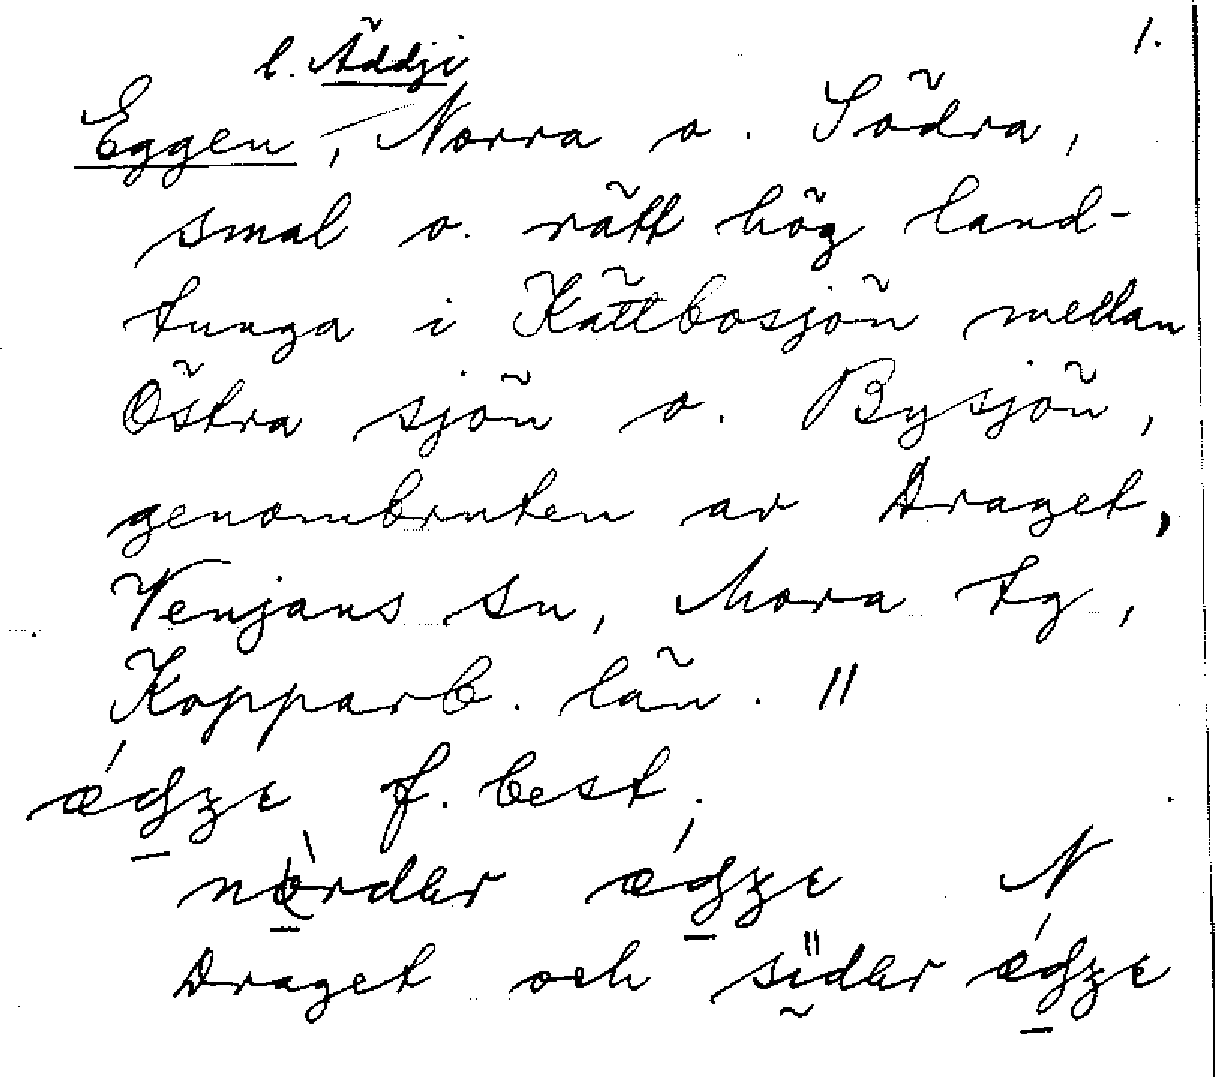 1.
l. Äddji
Eggen, Norra o. Södra,
smal o. rätt hög land-
tunga i Kättbosjön mellan
Östra sjön o. Bysjön,
genombruten av Draget,
Venjans sn, Mora tg,
Kopparb. län. "
f. best.
N
Draget och